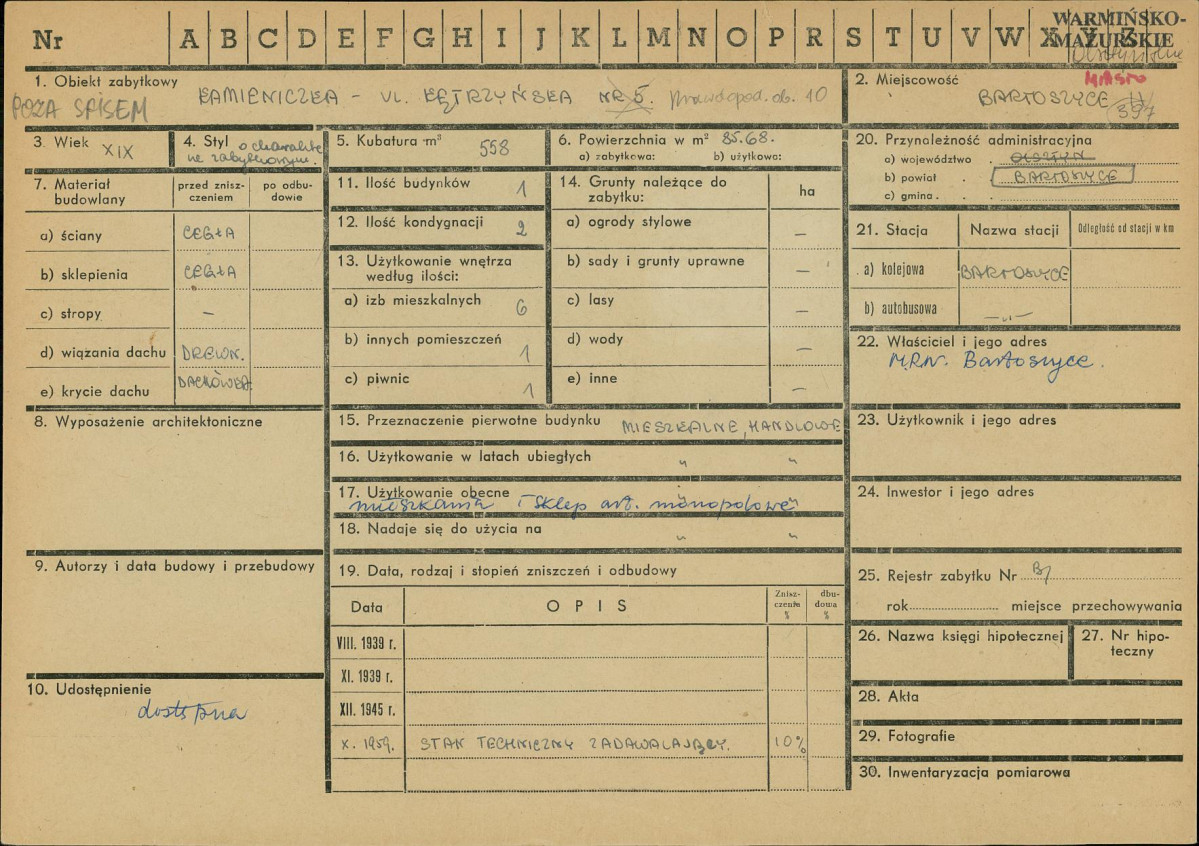 Nr A B C D E F G H I J K L M N O P R S T U V W X Y Z
WARMIŃSKO-
MAZURSKIE
1. Obiekt zabytkowy
KAMIENICZKA - UL. KĘTRZYŃSKA NR 5. prawdopod. ob. 10
POZA SPISEM
2. Miejscowość
MIASTO
BARTOSZYCE
397
3. Wiek XIX
4. Styl o charakte
rze zabytkowym.
5. Kubatura m³ 558
6. Powierzchnia w m² 85.68.
a) zabytkowa: b) użytkowa:
7. Materiał
budowlany
przed znisz-
czeniem
po odbu-
dowie
a) ściany CEGŁA
b) sklepienia CEGŁA
c) stropy —
d) wiązania dachu DREWN.
e) krycie dachu DACHÓWKA
8. Wyposażenie architektoniczne
9. Autorzy i data budowy i przebudowy
10. Udostępnienie
dostępna
11. Ilość budynków 1
12. Ilość kondygnacji 2
13. Użytkowanie wnętrza
według ilości:
a) izb mieszkalnych 6
b) innych pomieszczeń 1
c) piwnic 1
14. Grunty należące do
zabytku:
ha
a) ogrody stylowe —
b) sady i grunty uprawne —
c) lasy —
d) wody —
e) inne —
15. Przeznaczenie pierwotne budynku MIESZKALNE, HANDLOWE
16. Użytkowanie w latach ubiegłych " "
17. Użytkowanie obecne
mieszkania i sklep art. monopolowe
18. Nadaje się do użycia na " "
19. Data, rodzaj i stopień zniszczeń i odbudowy
Data OPIS
Znisz-
czenia
%
dbu-
dowa
%
VIII. 1939 r.
XI. 1939 r.
XII. 1945 r.
X. 1959. STAN TECHNICZNY ZADAWALAJĄCY. 10%
20. Przynależność administracyjna
a) województwo . OLSZTYN
b) powiat . BARTOSZYCE
c) gmina . .
21. Stacja Nazwa stacji Odległość od stacji w km
a) kolejowa BARTOSZYCE
b) autobusowa —"—
22. Właściciel i jego adres
M.R.N. Bartoszyce.
23. Użytkownik i jego adres
24. Inwestor i jego adres
25. Rejestr zabytku Nr B/
rok miejsce przechowywania
26. Nazwa księgi hipotecznej
27. Nr hipo-
teczny
28. Akta
29. Fotografie
30. Inwentaryzacja pomiarowa